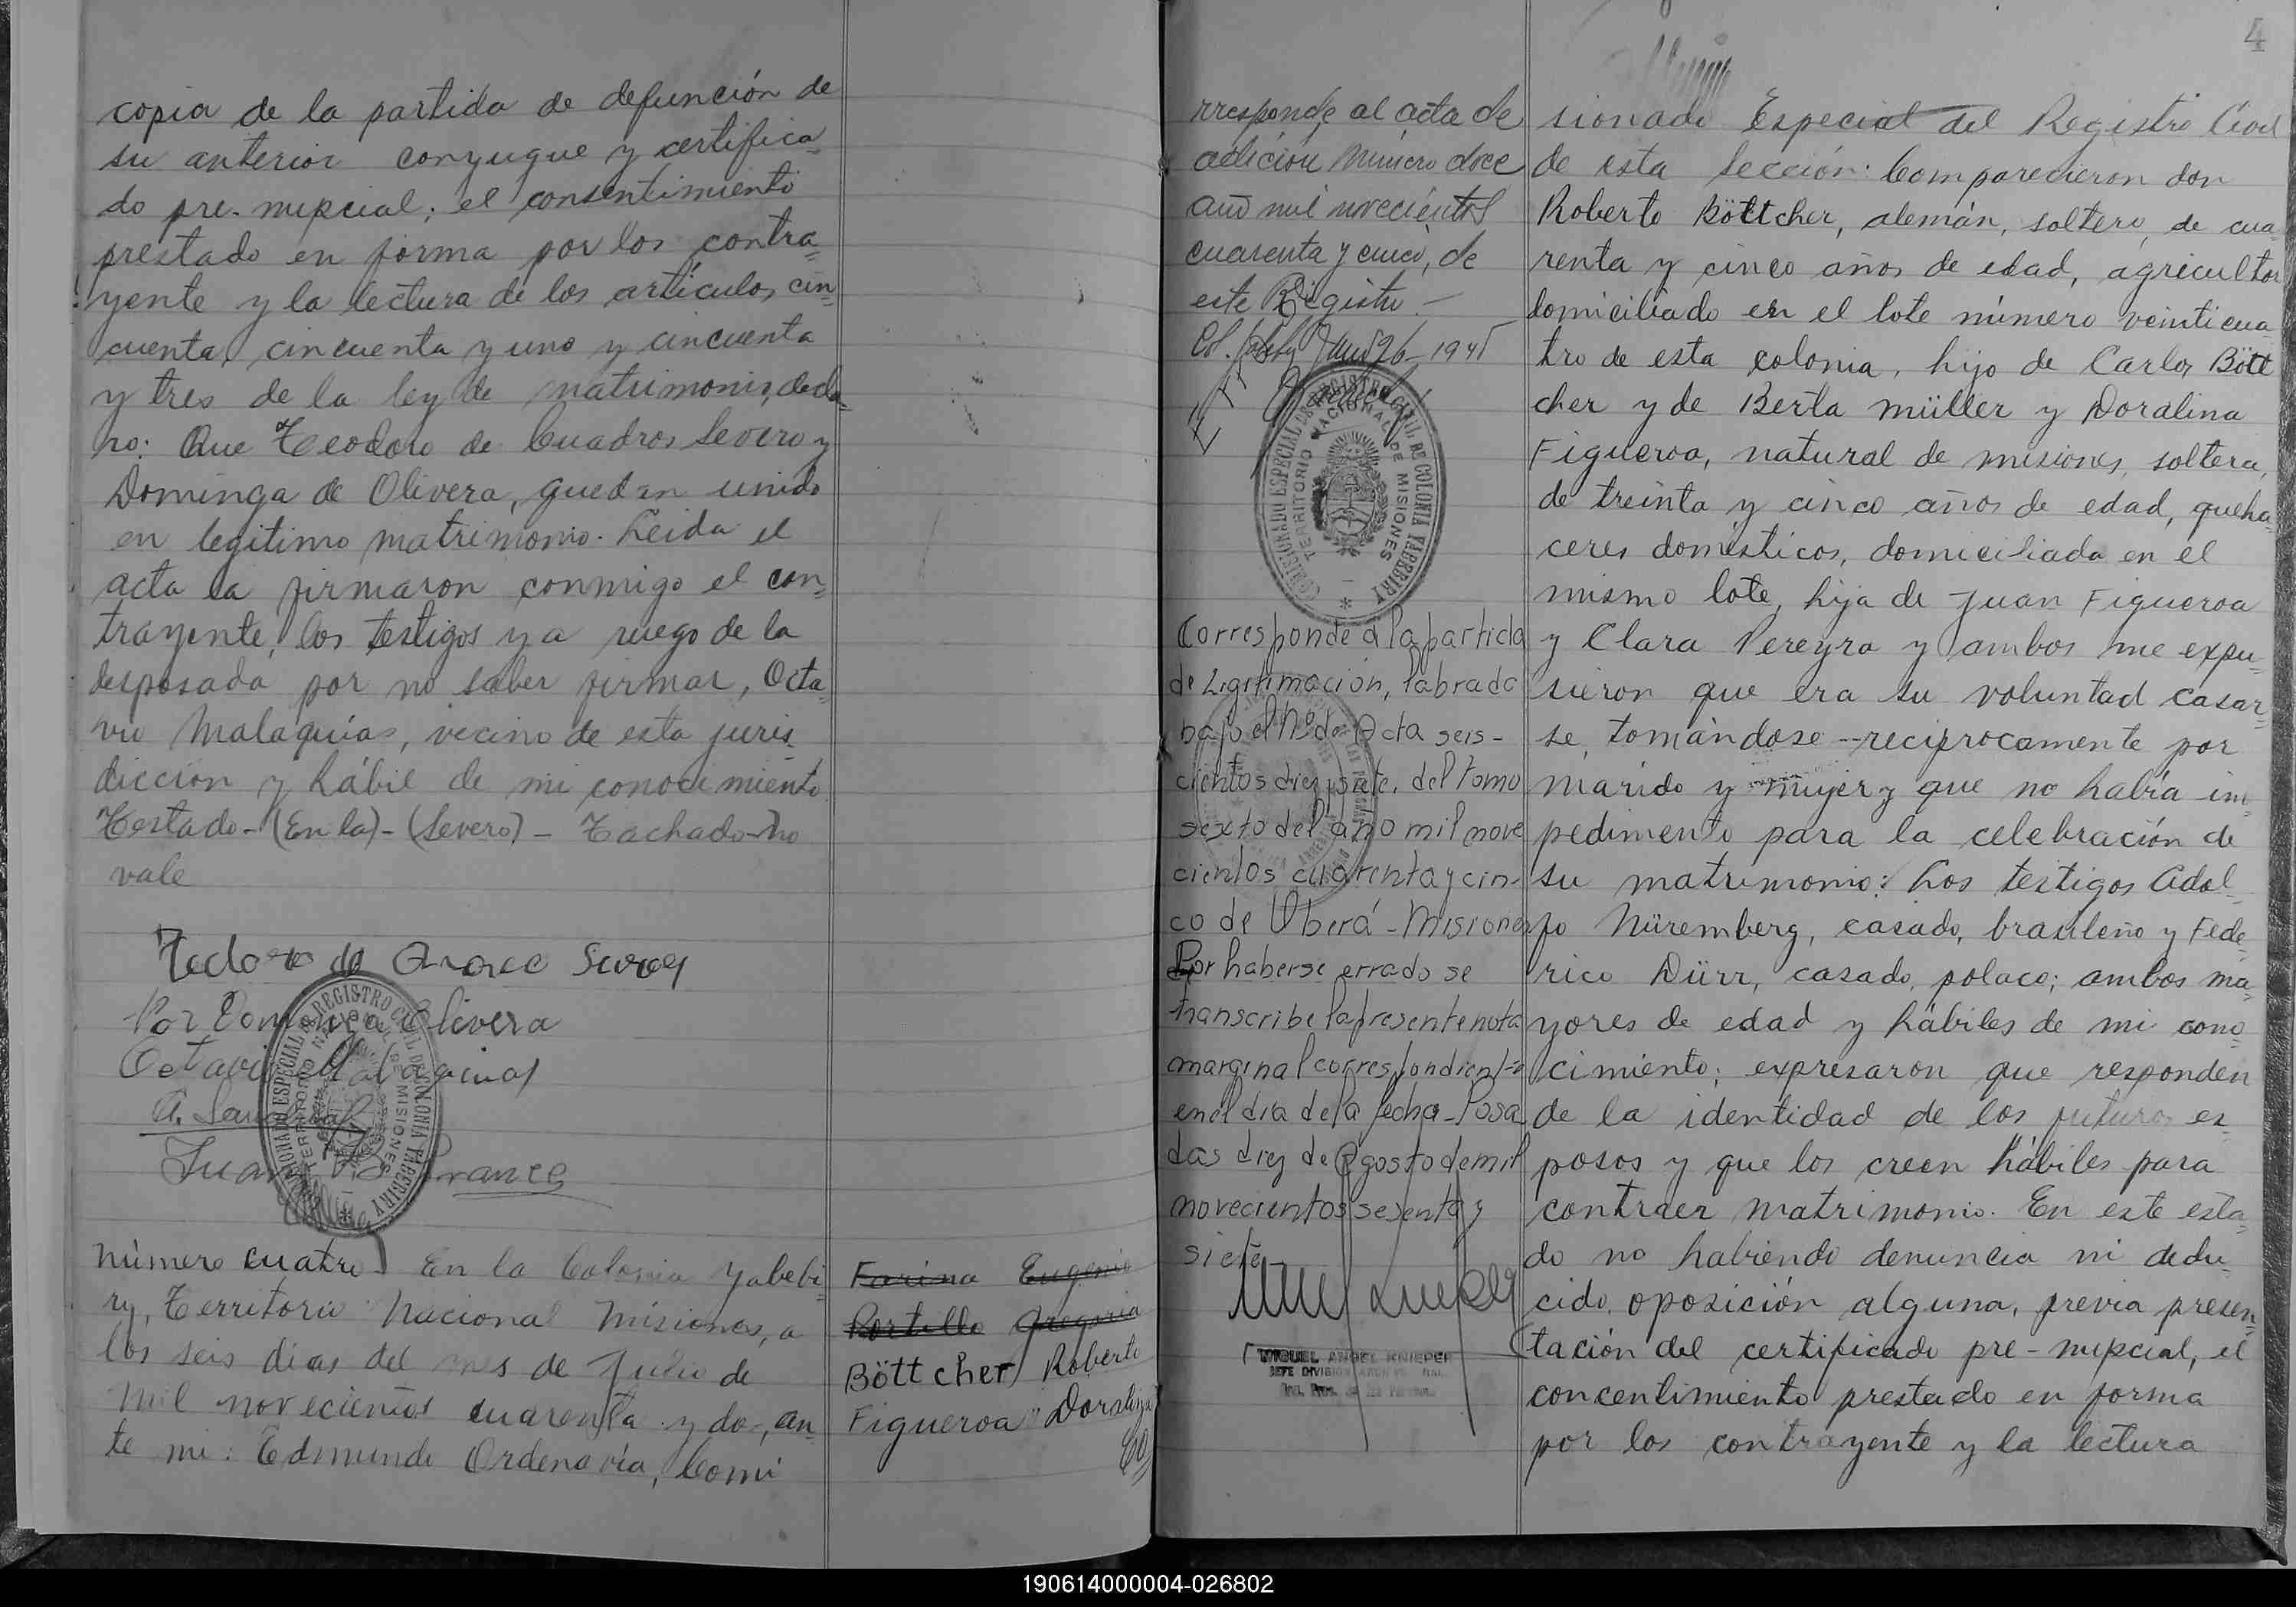 copia de la partida de defunción de
su anterior conyugue y certifica=
do pre-nupcial; el consentimiento
prestado en forma por los contra=
yente y la lectura de los artículos cin=
cuenta, cincuenta y uno y cincuenta
y tres de la ley de matrimonio, decla=
ro: Que Teodoro de Cuadros Severo y
Dominga de Olivera, quedan unido
en legitimo matrimonio. Leida el
acta la firmaron conmigo el con=
trayente, los testigos y a ruego de la
desposada por no saber firmar, Octa=
vio Malaquías, vecino de esta juris=
dicción y hábil de mi conocimiento.
Testado-(En la)-(Severo)- Tachado-no
vale
Por Dominga Olivera
Octavio Malaquias
Juan B. Franco
COMISIONADO ESPECIAL DE REGISTRO CIVIL DE COLONIA YABEBIRY
TERRITORIO NACIONAL DE MISIONES
Número cuatro. En la Colonia Yabebi=
ry, Territorio Nacional Misiones, a
los seis dias del mes de Julio de
mil novecientos cuarenta y dos, an=
te mi: Edmundo Ordenavía, Comi
Farina Eugenio
Portillo Gregoria
Böttcher Roberto
Figueroa Doralina
4
rresponde al acta de
adición número doce
año mil novecientos
cuarenta y cinco, de
este Registro.-
26-1945
COMISIONADO ESPECIAL DE REGISTRO CIVIL DE COLONIA YABEBIRY
TERRITORIO NACIONAL DE MISIONES
Corresponde a la partida
de Ligitimación, labrada
bajo el Nº de Acta seis-
cientos diez y siete, del tomo
sexto del año mil nove
cientos cuarenta y cin-
co de Oberá - Misiones
Por haberse errado se
transcribe la presente nota
marginal correspondiente
en el día de la fecha - Posa
das diez de Agosto de mil
novecientos sesenta y
siete-
MIGUEL ANGEL KNIEPER
JEFE DIVISION
sionado Especial del Registro Civil
de esta Sección: Comparecieron don
Roberto Böttcher, alemán, soltero, de cua=
renta y cinco años de edad, agricultor
domiciliado en el lote número veinticua
tro de esta colonia, hijo de Carlos Bött
cher y de Berta Müller y Doralina
Figueroa, natural de misiones, soltera,
de treinta y cinco años de edad, queha=
ceres domésticos, domiciliada en el
mismo lote, hija de Juan Figueroa
y Clara Pereyra y ambos me expu=
sieron que era su voluntad casar=
se, tomándose reciprocamente por
marido y mujer y que no había im
pedimento para la celebración de
su matrimonio: Los testigos Adol=
fo Nüremberg, casado, brasileño y Fede=
rico Dürr, casado, polaco; ambos ma=
yores de edad y hábiles de mi cono=
cimiento; expresaron que responden
de la identidad de los futuros es=
posos y que los creen hábiles para
contraer matrimonio. En este esta=
do no habiendo denuncia ni dedu=
cido, oposición alguna, previa presen=
tación del certificado pre-nupcial, el
concentimiento prestado en forma
por los contrayente y la lectura
190614000004-026802